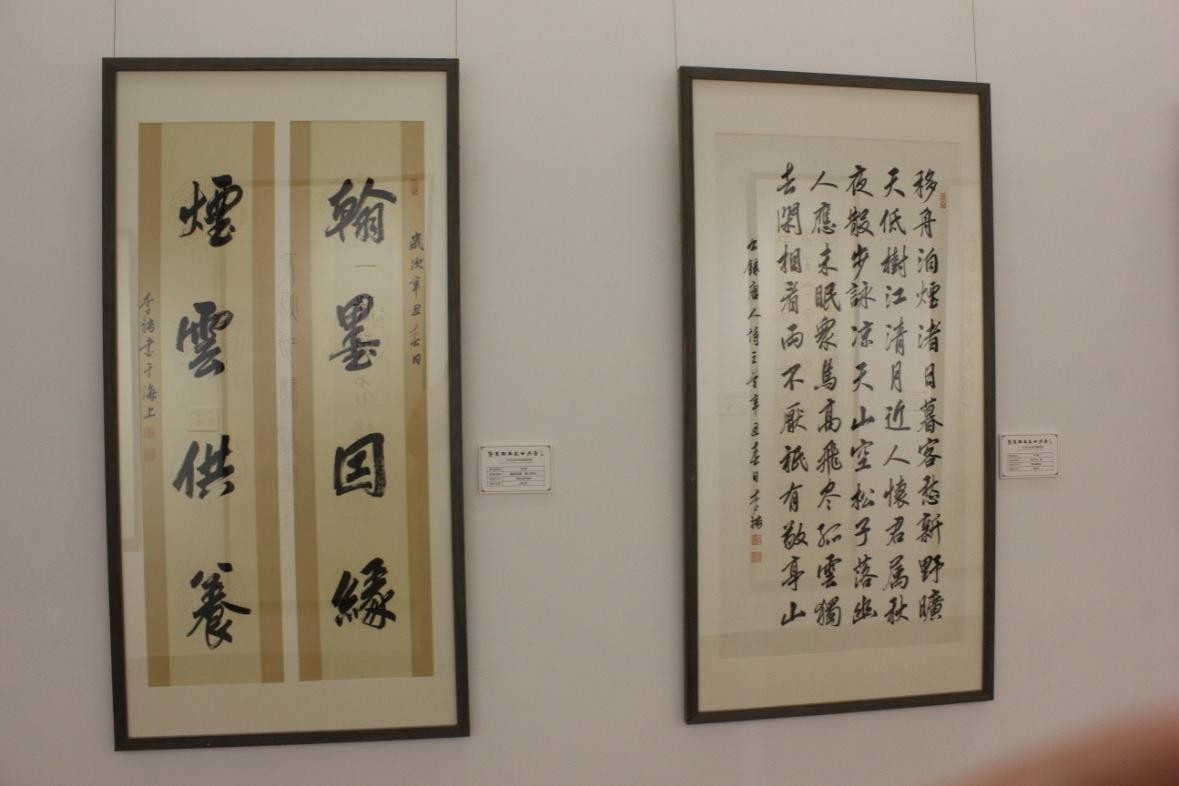 歲次辛丑春日
翰墨囙緣
煙雲供養
李 書于海上
移舟泊煙渚日暮客愁新野曠
天低樹江清月近人懷君属秋
夜散步詠凉天山空松子落幽
人應未眠衆鳥高飛尽孤雲獨
去閑相看兩不厭祗有敬亭山
右録唐人詩三首辛丑春日李